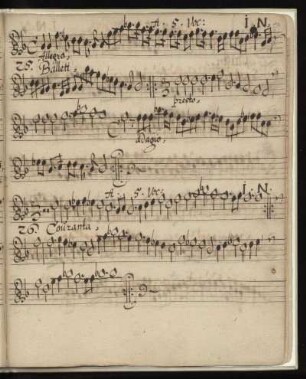 A. 5. Voc: I. N.
Allegro.
25. Ballett.
presto.
adagio.
A. 5. Voc: I. N.
26. Couranta.